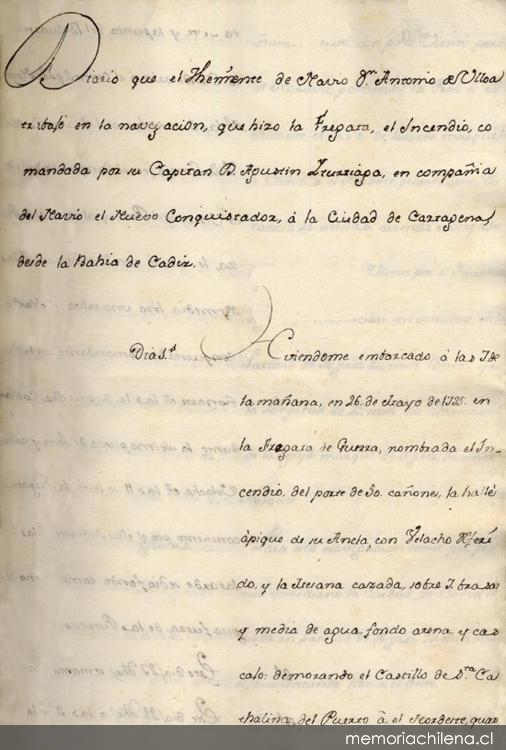 Diario que el Theniente de Navio Dn. Antonio de Ulloa
trabajó en la navegacion, que hizo la Fregata, el Incendio, co
mandada por su Capitan D. Agustin Iturriaga, en compañia
del Navio el Nuevo Conquistador, á la Ciudad de Cartagena,
desde la Bahia de Cadiz.
Dia 1º
Aviendome embarcado á las 7 de
la mañana, en 26. de Mayo de 1735. en
la Fregata de Guerra, nombrada el In-
cendio, del porte de 50. cañones, la hallé
àpique de su Ancla, con Velacho
do, y la Mesana cazada, sobre 7. brazas
y media de agua, fondo arena, y cas
calo: demorando el Castillo de Sta. Ca
thalina, del Puerto â el Nordeste, quar
memoriachilena.cl